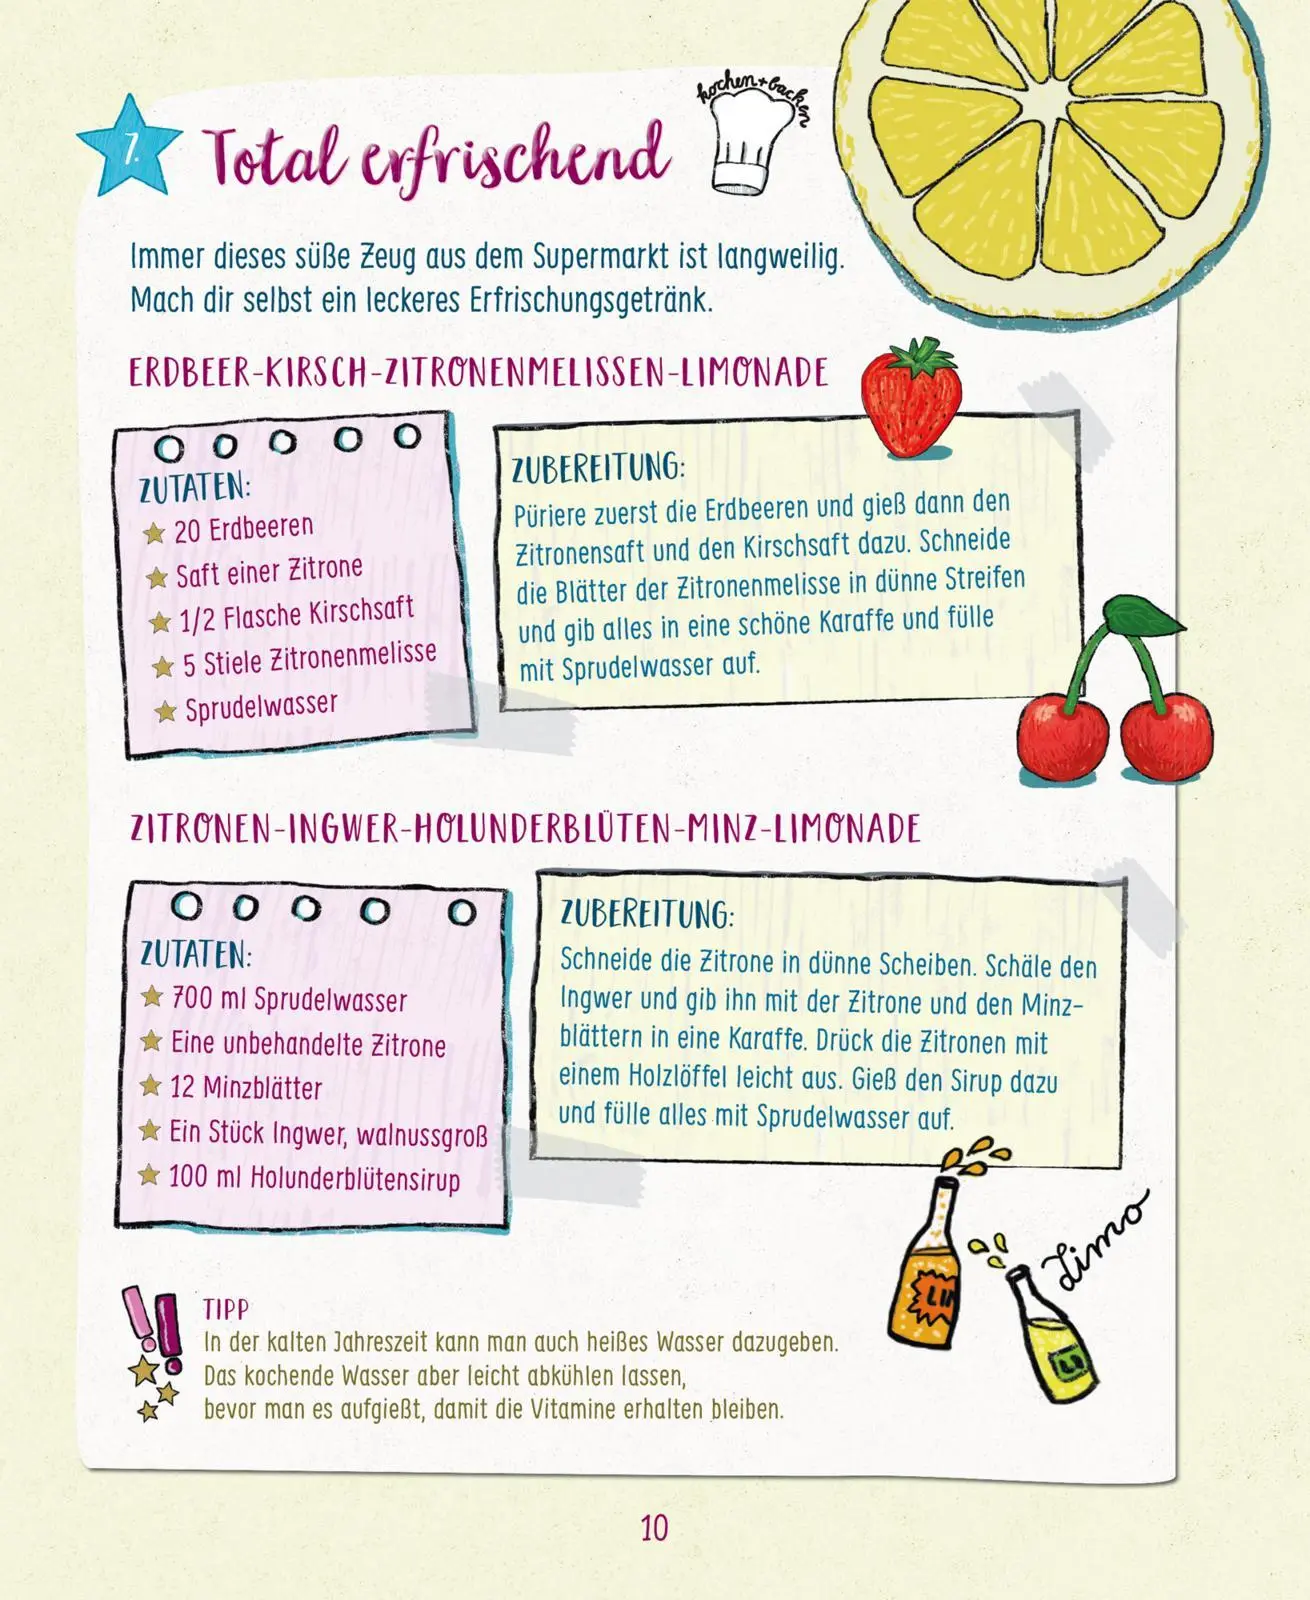 kochen+backen
7.
Total erfrischend
Immer dieses süße Zeug aus dem Supermarkt ist langweilig.
Mach dir selbst ein leckeres Erfrischungsgetränk.
ERDBEER-KIRSCH-ZITRONENMELISSEN-LIMONADE
ZUTATEN:
20 Erdbeeren
Saft einer Zitrone
1/2 Flasche Kirschsaft
5 Stiele Zitronenmelisse
Sprudelwasser
ZUBEREITUNG:
Püriere zuerst die Erdbeeren und gieß dann den
Zitronensaft und den Kirschsaft dazu. Schneide
die Blätter der Zitronenmelisse in dünne Streifen
und gib alles in eine schöne Karaffe und fülle
mit Sprudelwasser auf.
ZITRONEN-INGWER-HOLUNDERBLÜTEN-MINZ-LIMONADE
ZUTATEN:
700 ml Sprudelwasser
Eine unbehandelte Zitrone
12 Minzblätter
Ein Stück Ingwer, walnussgroß
100 ml Holunderblütensirup
ZUBEREITUNG:
Schneide die Zitrone in dünne Scheiben. Schäle den
Ingwer und gib ihn mit der Zitrone und den Minz-
blättern in eine Karaffe. Drück die Zitronen mit
einem Holzlöffel leicht aus. Gieß den Sirup dazu
und fülle alles mit Sprudelwasser auf.
LIM
Limo
LI
TIPP
In der kalten Jahreszeit kann man auch heißes Wasser dazugeben.
Das kochende Wasser aber leicht abkühlen lassen,
bevor man es aufgießt, damit die Vitamine erhalten bleiben.
10